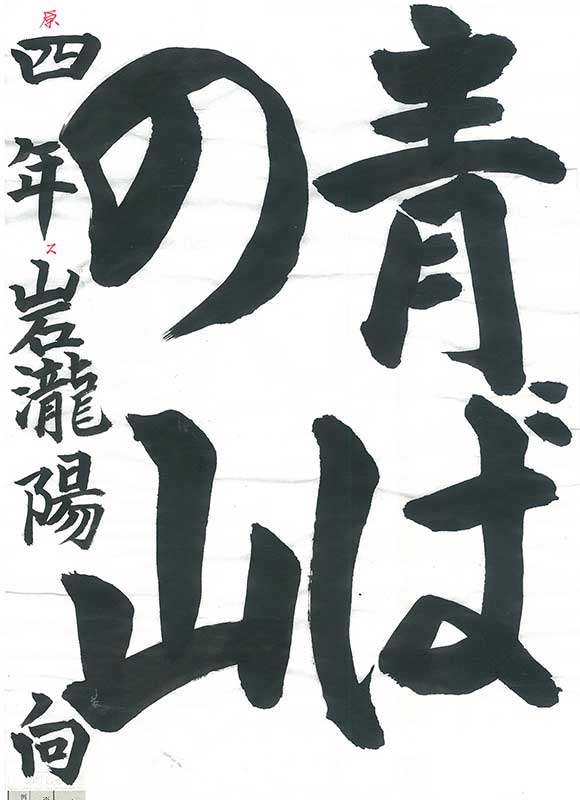 青ば
の山
四年 岩瀧陽向
原
ス